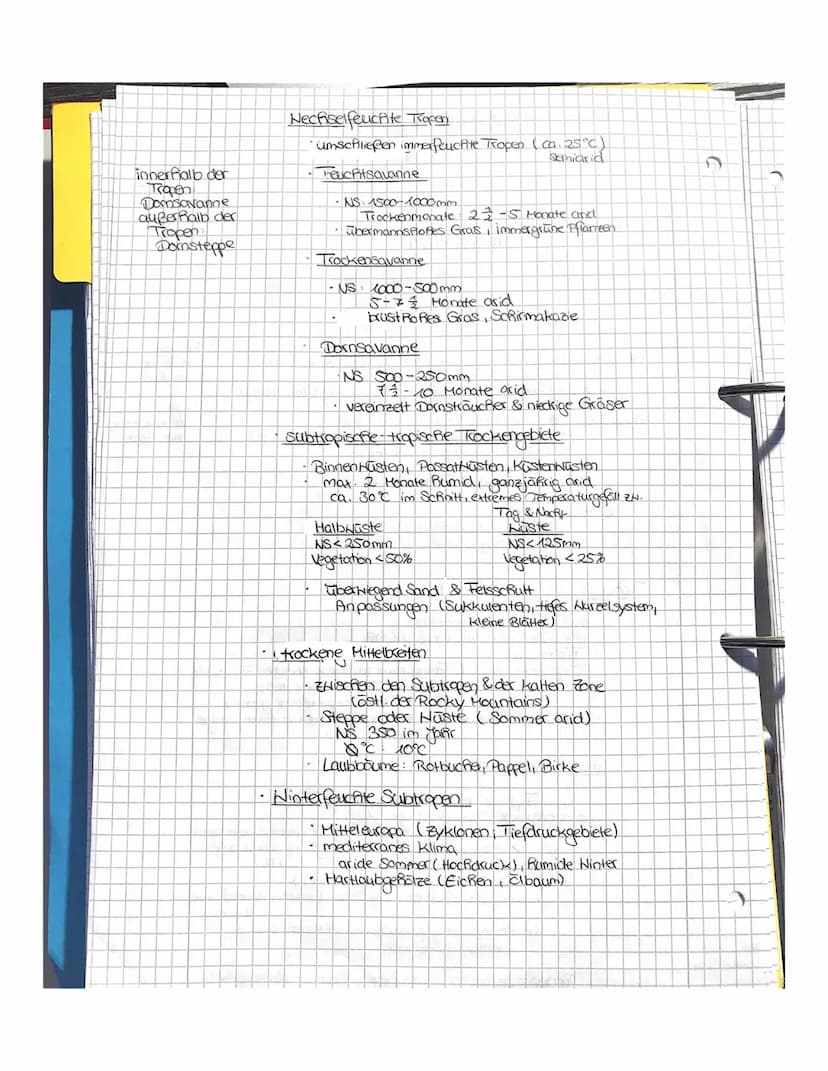 Wechselfeuchte Tropen
· umschließen immerfeuchte Tropen (ca. 25°C)
semiarid
innerhalb der
Tropen:
Dornsavanne
außerhalb der
Tropen:
Dornsteppe
· Feuchtsavanne
· NS: 1500-1000mm
Trockenmonate: 2 1/2 - 5 Monate arid
· übermannshohes Gras, immergrüne Pflanzen
· Trockensavanne
· NS: 1000-500mm
5-7 1/2 Monate arid
· brusthohes Gras, Schirmakazie
· Dornsavanne
· NS 500-250mm
7 1/2 - 10 Monate arid
· vereinzelt Dornsträucher & niedrige Gräser
· subtropische-tropische Trockengebiete
· Binnenwüsten, Passatwüsten, Küstenwüsten
· max. 2 Monate humid, ganzjährig arid
ca. 30°C im Schnitt, extremes Temperaturgefäll zw.
Tag & Nacht
Halbwüste
NS < 250mm
Vegetation < 50%
Wüste
NS < 125mm
Vegetation < 25%
· überwiegend Sand & Felsschutt
Anpassungen (Sukkulenten, tiefes Wurzelsystem,
kleine Blätter)
· trockene Mittelbreiten
· zwischen den Subtropen & der kalten Zone
(östl. der Rocky Mountains)
· Steppe oder Wüste (Sommer arid)
NS 350 im Jahr
Ø°C: 10°C
· Laubbäume: Rotbuche, Pappel, Birke
· Winterfeuchte Subtropen
· Mitteleuropa (Zyklonen; Tiefdruckgebiete)
· mediterranes Klima
aride Sommer (Hochdruck), humide Winter
· Hartlaubgehölze (Eichen, Ölbaum)